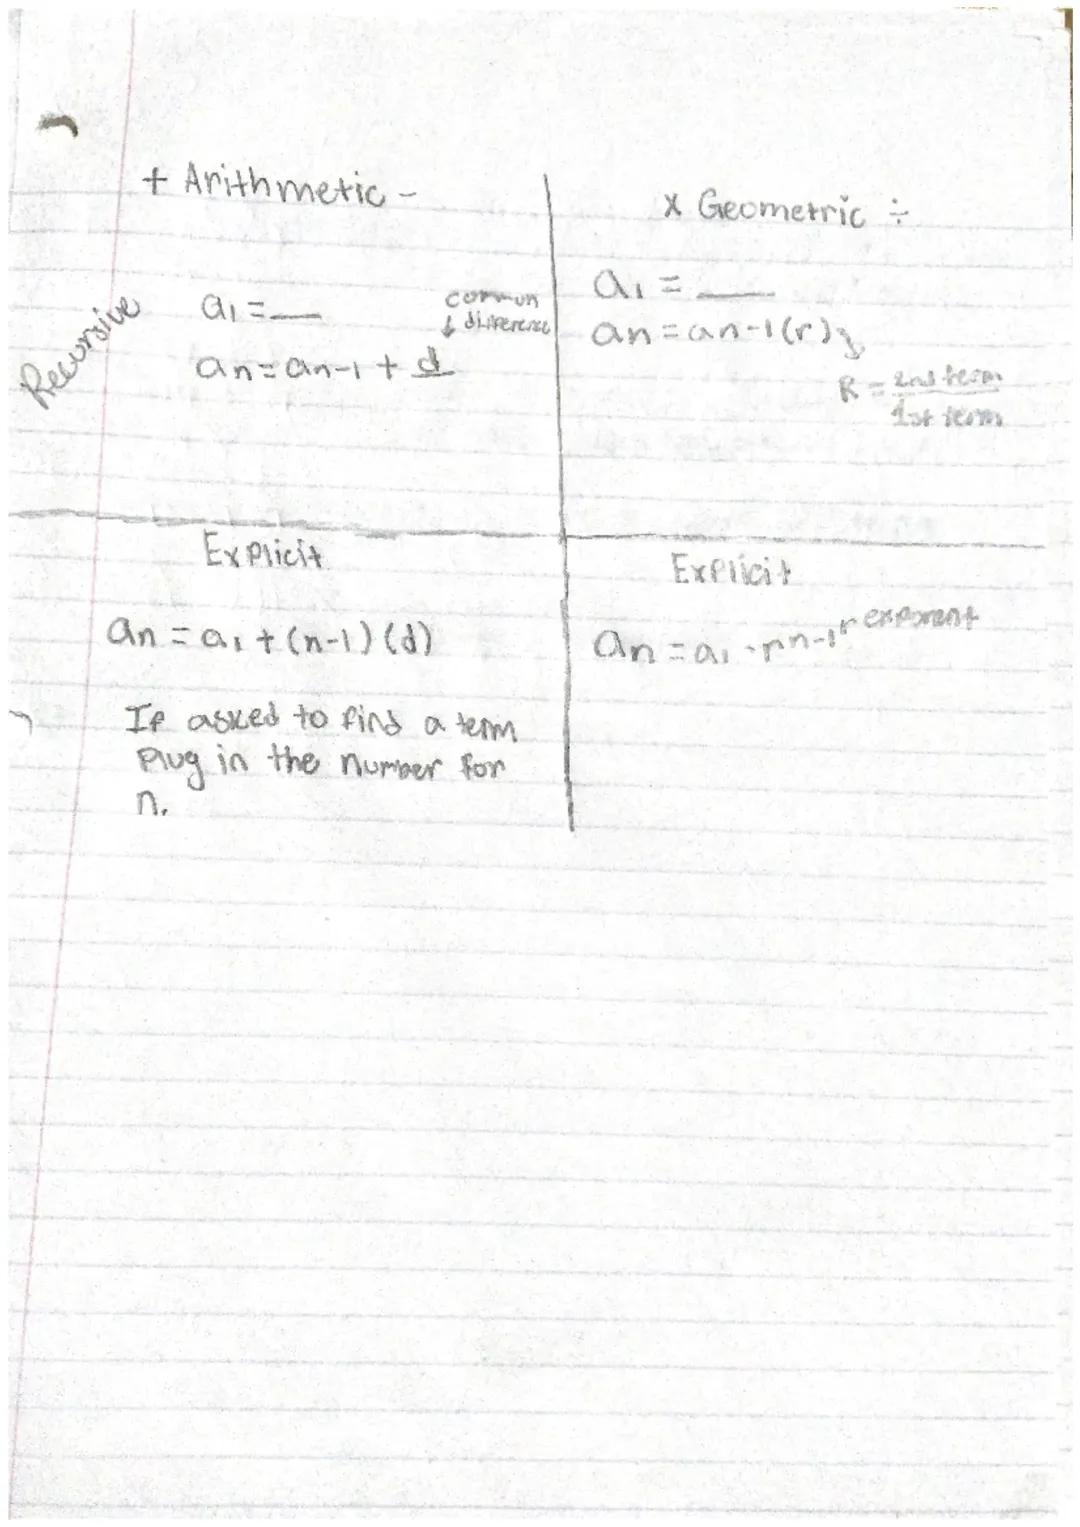 + Arithmetic -
Recursive
a1 = __
common
↓ difference
an = an-1 + d
x Geometric ÷
a1 = __
an = an-1(r)
R = 2nd term
1st term
Explicit
an = a1 + (n-1)(d)
If asked to find a term
Plug in the number for
n.
Explicit
an = a1 · rn-1 exponent